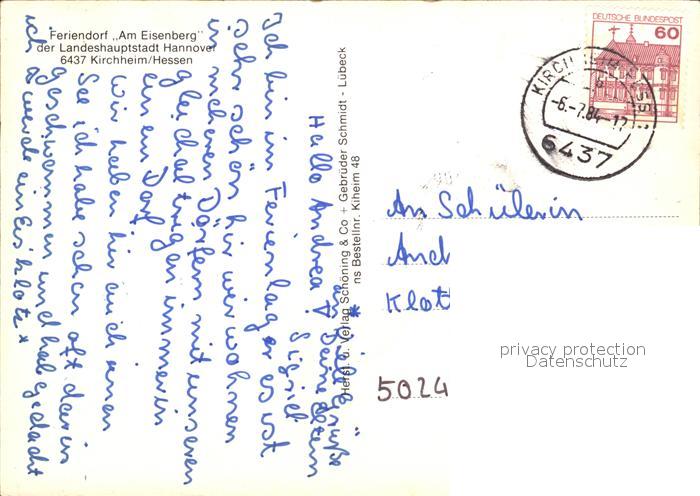 Feriendorf „Am Eisenberg"
der Landeshauptstadt Hannover
6437 Kirchheim/Hessen
DEUTSCHE BUNDESPOST
60
-6.-7.84-17
6437
Hallo Andrea!
Ich bin im Ferienlager es ist
sehr schön hir wir wohnen
in mehreren Dörfern mit unseren
gleichaltrigen immer in
ein em Dorf
wir haben hir auch einen
See ich habe schon oft darin
geschwommen und hab gedacht
ich werde ein Eisklotz *
* viele Grüße
an Deine Eltern
Sigrid
Herst. u. Verlag Schöning & Co + Gebrüder Schmidt - Lübeck
ns Bestellnr. Kiheim 48
An Schülerin
And
Klot
5024
privacy protection
Datenschutz